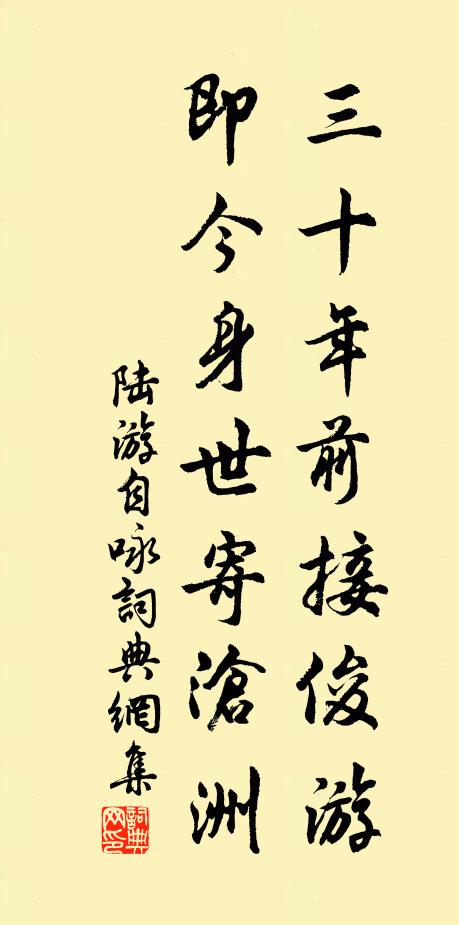 三十年前接俊游
即今身世寄滄洲
陆游自咏詞典網集
詞典网印